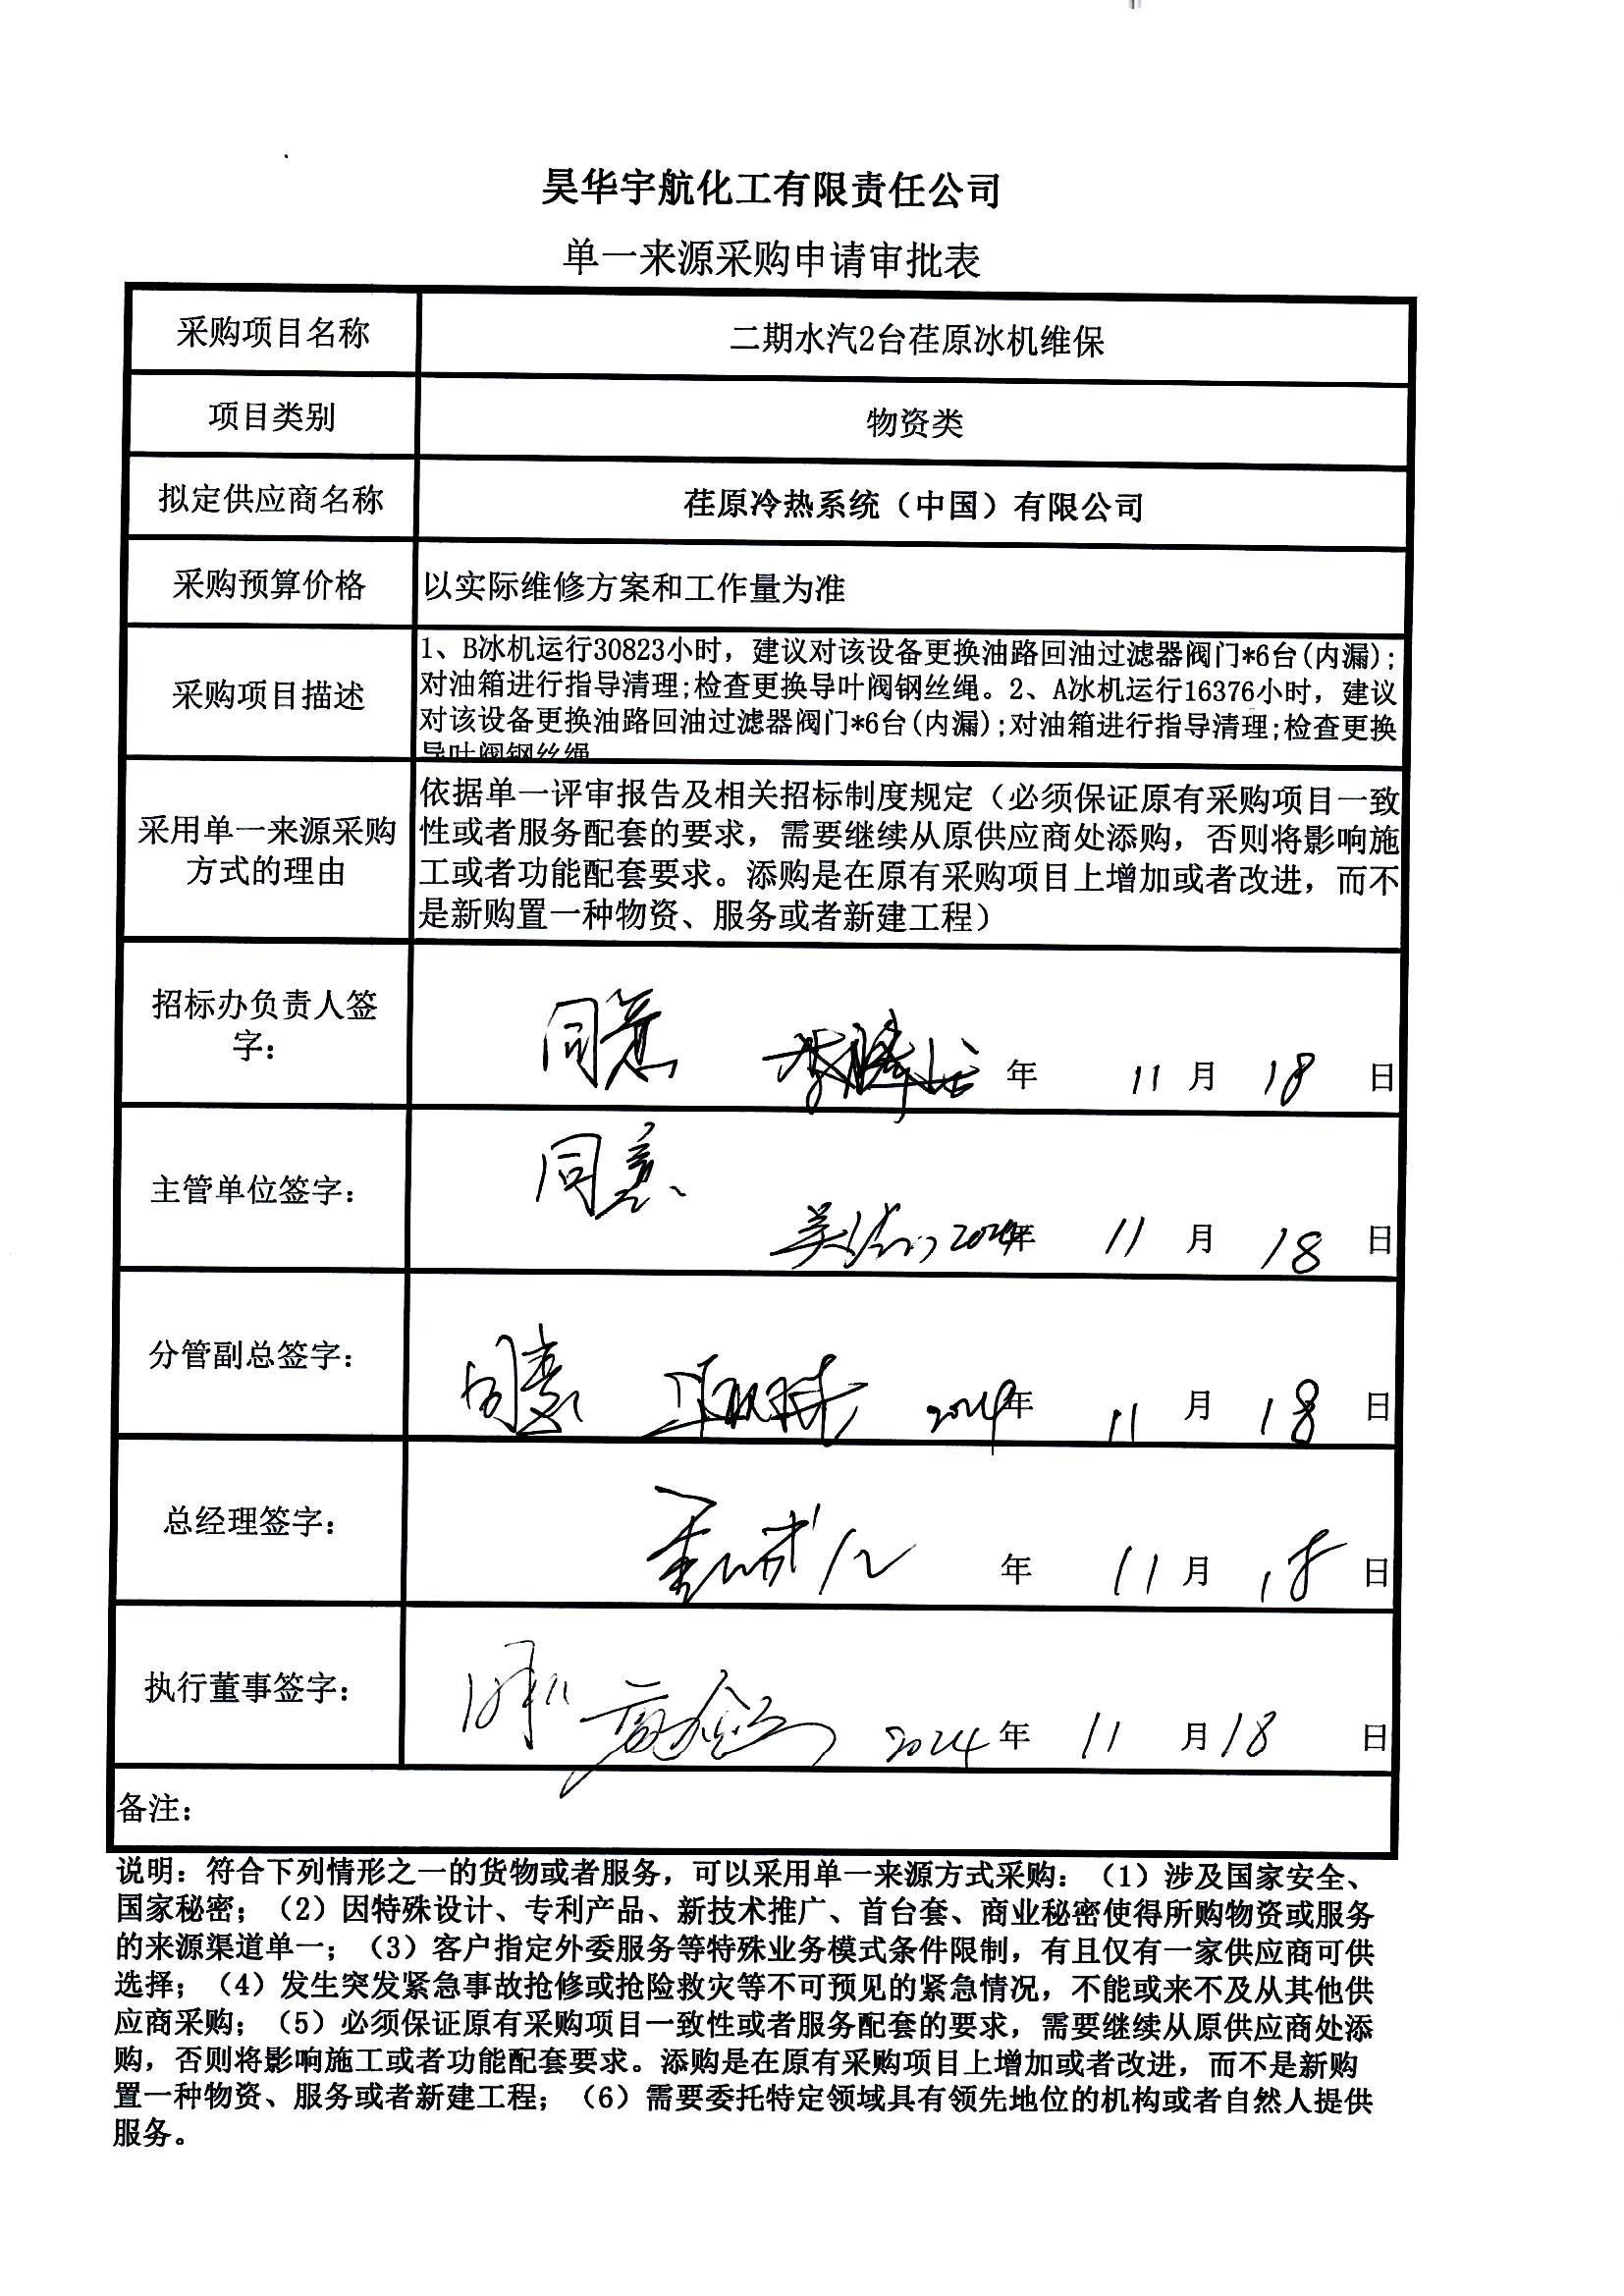 昊华宇航化工有限责任公司
单一来源采购申请审批表
采购项目名称
二期水汽2台荏原冰机维保
项目类别
物资类
拟定供应商名称
荏原冷热系统（中国）有限公司
采购预算价格
以实际维修方案和工作量为准
采购项目描述
1、B冰机运行30823小时，建议对该设备更换油路回油过滤器阀门*6台(内漏);
对油箱进行指导清理;检查更换导叶阀钢丝绳。2、A冰机运行16376小时，建议
对该设备更换油路回油过滤器阀门*6台(内漏);对油箱进行指导清理;检查更换
导叶阀钢丝绳
采用单一来源采购
方式的理由
依据单一评审报告及相关招标制度规定（必须保证原有采购项目一致
性或者服务配套的要求，需要继续从原供应商处添购，否则将影响施
工或者功能配套要求。添购是在原有采购项目上增加或者改进，而不
是新购置一种物资、服务或者新建工程）
招标办负责人签
字：
同意
年 11 月 18 日
主管单位签字：
同意
2024年 11 月 18 日
分管副总签字：
同意
2024年 11 月 18 日
总经理签字：
年 11 月 18 日
执行董事签字：
2024 年 11 月 18 日
备注：
说明：符合下列情形之一的货物或者服务，可以采用单一来源方式采购：（1）涉及国家安全、
国家秘密；（2）因特殊设计、专利产品、新技术推广、首台套、商业秘密使得所购物资或服务
的来源渠道单一；（3）客户指定外委服务等特殊业务模式条件限制，有且仅有一家供应商可供
选择；（4）发生突发紧急事故抢修或抢险救灾等不可预见的紧急情况，不能或来不及从其他供
应商采购；（5）必须保证原有采购项目一致性或者服务配套的要求，需要继续从原供应商处添
购，否则将影响施工或者功能配套要求。添购是在原有采购项目上增加或者改进，而不是新购
置一种物资、服务或者新建工程；（6）需要委托特定领域具有领先地位的机构或者自然人提供
服务。